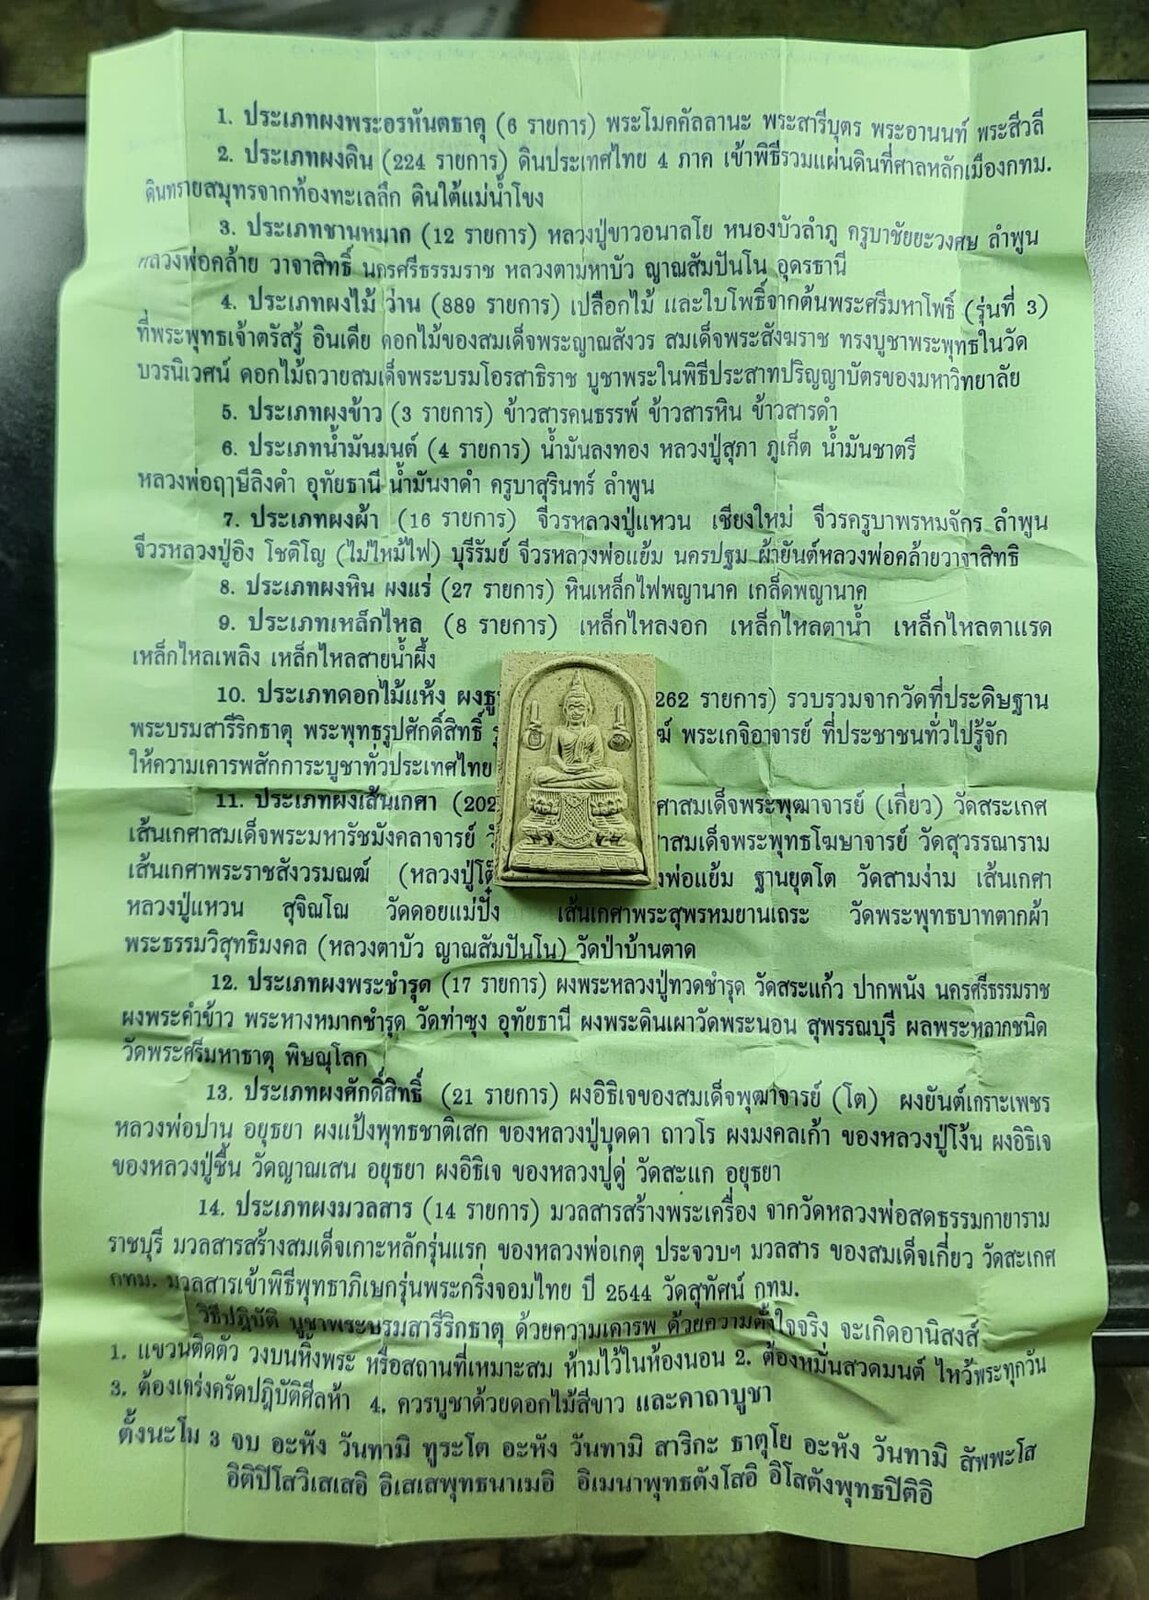 1. ประเภทผงพระอรหันตธาตุ (6 รายการ) พระโมคคัลลานะ พระสารีบุตร พระอานนท์ พระสีวลี
2. ประเภทผงดิน (224 รายการ) ดินประเทศไทย 4 ภาค เข้าพิธีรวมแผ่นดินที่ศาลหลักเมืองกทม.
ดินทรายสมุทรจากท้องทะเลลึก ดินใต้แม่น้ำโขง
3. ประเภทชานหมาก (12 รายการ) หลวงปู่ขาวอนาลโย หนองบัวลำภู ครูบาชัยยะวงศษ ลำพูน
หลวงพ่อคล้าย วาจาสิทธิ์ นครศรีธรรมราช หลวงตามหาบัว ญาณสัมปันโน อุดรธานี
4. ประเภทผงไม้ ว่าน (889 รายการ) เปลือกไม้ และใบโพธิ์จากต้นพระศรีมหาโพธิ์ (รุ่นที่ 3)
ที่พระพุทธเจ้าตรัสรู้ อินเดีย ดอกไม้ของสมเด็จพระญาณสังวร สมเด็จพระสังฆราช ทรงบูชาพระพุทธในวัด
บวรนิเวศน์ ดอกไม้ถวายสมเด็จพระบรมโอรสาธิราช บูชาพระในพิธีประสาทปริญญาบัตรของมหาวิทยาลัย
5. ประเภทผงข้าว (3 รายการ) ข้าวสารคนธรรพ์ ข้าวสารหิน ข้าวสารดำ
6. ประเภทน้ำมันมนต์ (4 รายการ) น้ำมันลงทอง หลวงปู่สุภา ภูเก็ต น้ำมันชาตรี
หลวงพ่อฤาษีลิงดำ อุทัยธานี น้ำมันงาดำ ครูบาสุรินทร์ ลำพูน
7. ประเภทผงผ้า (16 รายการ) จีวรหลวงปู่แหวน เชียงใหม่ จีวรครูบาพรหมจักร ลำพูน
จีวรหลวงปู่อิง โชติโญ (ไม่ไหม้ไฟ) บุรีรัมย์ จีวรหลวงพ่อแย้ม นครปฐม ผ้ายันต์หลวงพ่อคล้ายวาจาสิทธิ
8. ประเภทผงหิน ผงแร่ (27 รายการ) หินเหล็กไฟพญานาค เกล็ดพญานาค
9. ประเภทเหล็กไหล (8 รายการ) เหล็กไหลงอก เหล็กไหลตาน้ำ เหล็กไหลตาแรด
เหล็กไหลเพลิง เหล็กไหลสายน้ำผึ้ง
10. ประเภทดอกไม้แห้ง ผงธู 262 รายการ) รวบรวมจากวัดที่ประดิษฐาน
พระบรมสารีริกธาตุ พระพุทธรูปศักดิ์สิทธิ์ พระเกจิอาจารย์ ที่ประชาชนทั่วไปรู้จัก
ให้ความเคารพสักการะบูชาทั่วประเทศไทย
11. ประเภทผงเส้นเกศา (202 ศาสมเด็จพระพุฒาจารย์ (เกี่ยว) วัดสระเกศ
เส้นเกศาสมเด็จพระมหารัชมังคลาจารย์ าสมเด็จพระพุทธโฆษาจารย์ วัดสุวรรณาราม
เส้นเกศาพระราชสังวรมณฒ์ (หลวงปู่โต๊ งพ่อแย้ม ฐานยุตโต วัดสามง่าม เส้นเกศา
หลวงปู่แหวน สุจิณโณ วัดดอยแม่ปั๋ง เส้นเกศาพระสุพรหมยานเถระ วัดพระพุทธบาทตากผ้า
พระธรรมวิสุทธิมงคล (หลวงตาบัว ญาณสัมปันโน) วัดป่าบ้านตาด
12. ประเภทผงพระชำรุด (17 รายการ) ผงพระหลวงปู่ทวดชำรุด วัดสระแก้ว ปากพนัง นครศรีธรรมราช
ผงพระคำข้าว พระหางหมากชำรุด วัดท่าซุง อุทัยธานี ผงพระดินเผาวัดพระนอน สุพรรณบุรี ผลพระหลากชนิด
วัดพระศรีมหาธาตุ พิษณุโลก
13. ประเภทผงศักดิ์สิทธิ์ (21 รายการ) ผงอิธิเจของสมเด็จพุฒาจารย์ (โต) ผงยันต์เกราะเพชร
หลวงพ่อปาน อยุธยา ผงแป้งพุทธชาติเสก ของหลวงปู่บุดดา ถาวโร ผงมงคลเก้า ของหลวงปู่โง้น ผงอิธิเจ
ของหลวงปู่ชื้น วัดญาณเสน อยุธยา ผงอิธิเจ ของหลวงปู่ดู่ วัดสะแก อยุธยา
14. ประเภทผงมวลสาร (14 รายการ) มวลสารสร้างพระเครื่อง จากวัดหลวงพ่อสดธรรมกายาราม
ราชบุรี มวลสารสร้างสมเด็จเกาะหลักรุ่นแรก ของหลวงพ่อเกตุ ประจวบฯ มวลสาร ของสมเด็จเกี่ยว วัดสะเกศ
กทม. มวลสารเข้าพิธีพุทธาภิเษกรุ่นพระกริ่งจอมไทย ปี 2544 วัดสุทัศน์ กทม.
วิธีปฏิบัติ บูชาพระบรมสารีริกธาตุ ด้วยความเคารพ ด้วยความตั้งใจจริง จะเกิดอานิสงส์
1. แขวนติดตัว วงบนหิ้งพระ หรือสถานที่เหมาะสม ห้ามไว้ในห้องนอน 2. ต้องหมั่นสวดมนต์ ไหว้พระทุกวัน
3. ต้องเคร่งครัดปฏิบัติศีลห้า 4. ควรบูชาด้วยดอกไม้สีขาว และคาถาบูชา
ตั้งนะโม 3 จบ อะหัง วันทามิ ทูระโต อะหัง วันทามิ สาริกะ ธาตุโย อะหัง วันทามิ สัพพะโส
อิติปิโสวิเสเสอิ อิเสเสพุทธนาเมอิ อิเมนาพุทธตังโสอิ อิโสตังพุทธปิติอิ